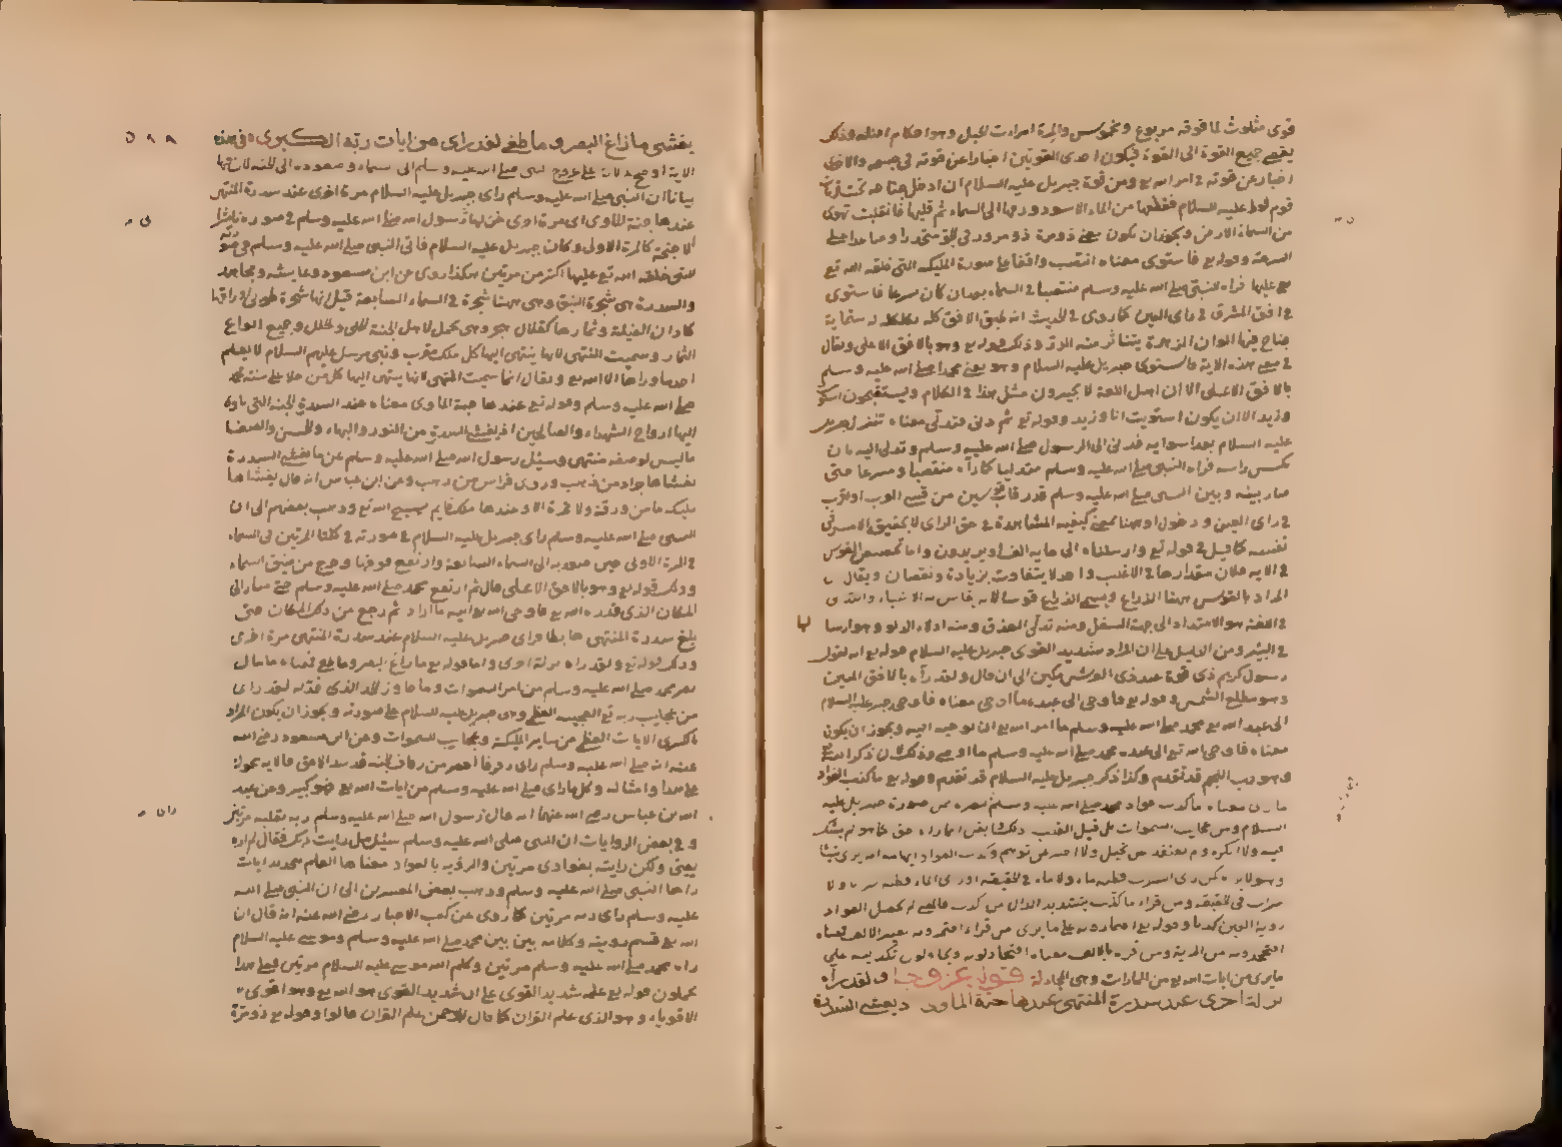 قوى مثلوث لما فوقه مربوع ومخموس والمرة امررت الحبل وهو احكام الفتله وذكر
يقع جميع القوة الى القوة فيكون احدى القوتين اخبارا عن قوته في جسمه والاخرى
اخبارا عن قوته في امر الله تع ومن قوة جبريل عليه السلام ان ادخل جناحه تحت قريات
قوم لوط عليه السلام فقطعها من الماء الاسود ورفعها الى السماء ثم قلبها فانقلبت تهوى
من السماء الى الارض ويجوز ان يكون معنى ذو مرة ذو مرور في الهواء
السرعة وقوله تع فاستوى معناه انتصب واقفا على صورة الملئكة التي خلقه الله تع
عليها فراه النبي صلى الله عليه وسلم منتصبا في السماء بعد ان كان مسرعا فاستوى
في افق المشرق في راى العين كما روى في الحديث انه طبق الافق كله بكلكله له ستماية
جناح فيها الوان الزهرة يتناثر منه الدر وذلك قوله تع وهو بالافق الاعلى ويقال
في معنى هذه الاية فاستوى جبريل عليه السلام وهو يعني محمدا صلى الله عليه وسلم
بالافق الاعلى الا ان اهل اللغة لا يجيزون مثل هذا في الكلام ويستقبحون استوى
وزيد الا ان يكون استويت انا وزيد وقوله تع ثم دنى فتدلى معناه
عليه السلام بعد استوايه فدنى الى الرسول صلى الله عليه وسلم وتدلى اليه بان
نكس راسه فراه النبي صلى الله عليه وسلم متدليا كما رآه منتصبا ومسرعا حتى
صار بينه وبين النبي صلى الله عليه وسلم قدر قاب قوسين من قسى العرب او اقرب
في راى العين ودخول او ههنا لمعنى كيفية المشاهدة في حق الراى لا لتحقيق الامر في
نفسه كما قيل في قوله تع وارسلناه الى ماية الف او يزيدون واما تخصيص القوس
في الاية فلان مقدارها في الاغلب واحد لا يتفاوت بزيادة ونقصان ويقال
المراد بالقوس ههنا الذراع ويسمى الذراع قوسا لانه يقاس به الاشياء والتدلى
في اللغة هو الامتداد الى جهة السفل ومنه تدلى العذق ومنه ادلاء الدلو وهو ارسالها
في البئر ومن الدليل على ان المراد بشديد القوى جبريل عليه السلام قوله تع انه لقول
رسول كريم ذى قوة عند ذى العرش مكين الى ان قال ولقد رآه بالافق المبين
وهو مطلع الشمس وقوله تع فاوحى الى عبده ما اوحى معناه فاوحى جبريل عليه السلام
الى عبد الله تع محمد صلى الله عليه وسلم ما امر الله تع ان يوحيه اليه ويجوز ان يكون
معناه فاوحى الله تع الى عبده محمد صلى الله عليه وسلم ما اوحى وذلك لان ذكر الله تع
وهو رب النجم قد تقدم وكذا ذكر جبريل عليه السلام قد تقدم وقوله تع ما كذب الفؤاد
ما راى معناه ما كذب فواد محمد صلى الله عليه وسلم بصره من صورة جبريل عليه
السلام ومن عجايب السموات بل قبل القلب
وهو لا يراه كمن راى السراب فظنه ماء ولا ماء في الحقيقة او راى الماء فظنه سرابا ولا
سراب في الحقيقة ومن قراء ما كذب بتشديد الذال
رؤية العين كذبا وقوله تع افتمارونه على ما يرى من قراء افتمرونه بغير الالف فمعناه
افتجحدونه من المرية ومن قراه بالالف معناه افتجادلونه وتحاولون تكذيبه على
ما يرى من ايات الله تع من الممارات وهى المجادلة قوله عز وجل ولقد رآه
نزلة اخرى عند سدرة المنتهى عندها جنة الماوى اذ يغشى السدرة
يغشى ما زاغ البصر وما طغى لقد راى من ايات ربه الكبرى في هذه
الاية اوضح دلالة على عروج النبي صلى الله عليه وسلم الى سماء وصعوده الى الجنة لان فيها
بيانا ان النبي صلى الله عليه وسلم راى جبريل عليه السلام مرة اخرى عند سدرة المنتهى
عندها جنة الماوى اى مرة اخرى حين لها رسول الله صلى الله عليه وسلم في صورته ناشرا
الاجنحة كالمرة الاولى وكان جبريل عليه السلام فاق النبي صلى الله عليه وسلم في صورته
التى خلقه الله تع عليها اكثر من مرتين هكذا روى عن ابن مسعود وعايشة ومجاهد
والسدرة هى شجرة النبق وهى ههنا شجرة في السماء السابعة قيل انها شجرة طوبى اوراقها
كاذان الفيلة وثمارها كقلال هجر وهى تحمل لاهل الجنة الحلى والحلل وجميع انواع
الثمار وسميت المنتهى لانها ينتهى اليها كل ملك مقرب ونبى مرسل عليهم السلام لا يعلم
احد ما وراها الا الله تع ويقال انما سميت المنتهى لانها ينتهى اليها كل من خلا على سنة محمد
صلى الله عليه وسلم وقوله تع عندها جنة الماوى معناه عند السدرة الجنة التى ياوى
اليها ارواح الشهداء والصالحين اذ يغشى السدرة من النور والبهاء والحسن والصفا
ما ليس لوصفه منتهى وسئل رسول الله صلى الله عليه وسلم عن ما يغشى السدرة
يغشاها جراد من ذهب وروى فراش من ذهب وعن ابن عباس انه قال يغشاها
ملئكة ما من ورقة ولا ثمرة الا وعندها ملك قايم يسبح الله تع وذهب بعضهم الى ان
النبي صلى الله عليه وسلم راى جبريل عليه السلام في صورته في كلتا المرتين في السماء
في المرة الاولى حين صعد به الى السماء السابعة وارتفع فوقها
وذلك قوله تع وهو بالافق الاعلى قال ثم ارتفع محمد صلى الله عليه وسلم حتى صار الى
المكان الذى قدره الله تع فاوحى الله تع اليه ما اراد ثم رجع من ذلك المكان حتى
بلغ سدرة المنتهى هابطا فراى جبريل عليه السلام عند سدرة المنتهى مرة اخرى
وذلك قوله تع ولقد رآه نزلة اخرى واما قوله تع ما زاغ البصر وما طغى فمعناه ما مال
بصر محمد صلى الله عليه وسلم من امر السموات وما جاوز الحد الذى قدر له لقد راى
من عجايب ربه تع العجيبة العظمى وهى جبريل عليه السلام على صورته ويجوز ان يكون المراد
بالكبرى الايات العظمى من ساير الملئكة وعجايب السموات وعن ابن مسعود رضى الله
عنه انه صلى الله عليه وسلم راى رفرفا اخضر من رفارف الجنة قد سد الافق فالاية محمولة
على هذا وامثاله وكل ما راى صلى الله عليه وسلم من ايات الله تع فهو كبير وعن عبد
الله بن عباس رضى الله عنهما انه قال رسول الله صلى الله عليه وسلم ربه بقلبه مرتين
وفي بعض الروايات ان النبي صلى الله عليه وسلم سئل هل رايت ربك فقال لم اره
بعينى ولكن رايته بفوادى مرتين والرؤية بالفواد معناها العلم
راها النبي صلى الله عليه وسلم وذهب بعض المفسرين الى ان النبي صلى الله
عليه وسلم راى ربه مرتين كما روى عن كعب الاحبار رضى الله عنه انه قال ان
الله تع قسم رؤيته وكلامه بين بين محمد صلى الله عليه وسلم وموسى عليه السلام
راه محمد صلى الله عليه وسلم مرتين وكلم الله موسى عليه السلام مرتين فعلى هذا
يحملون قوله تع علمه شديد القوى على ان شديد القوى هو الله تع وهو اقوى
الاقوياء وهو الذى علم القران كما قال الرحمن علم القران قالوا وقوله تع ذو مرة